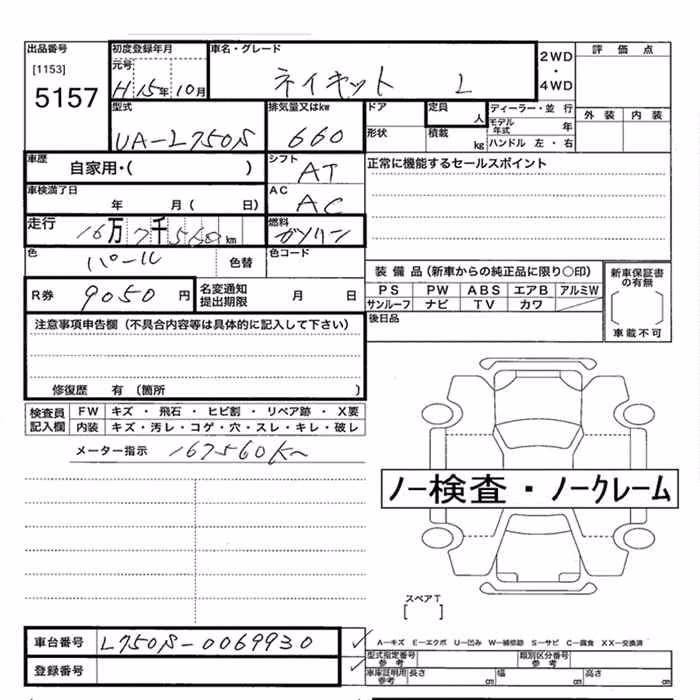 出品番号
[1153]
5157
初度登録年月
元号
H 15年 10月
車名・グレード
ネイキット L
2WD
・
4WD
評価点
外装 内装
型式
UA-L750S
排気量又はkw
660
ドア
形状
定員
人
積載
kg
ディーラー・並 行
モデル年式 年
ハンドル 左・右
車歴
自家用・( )
シフト
AT
正常に機能するセールスポイント
車検満了日
年 月( 日)
AC
AC
走行
16万7千560km
燃料
ガソリン
色
パール
色替
色コード
R券 9050円
名変通知
提出期限
月 日
装備品(新車からの純正品に限り○印)
PS PW ABS エアB アルミW
サンルーフ ナビ TV カワ
新車保証書
の有無
車載不可
後日品
注意事項申告欄(不具合内容等は具体的に記入して下さい)
修復歴 有 (箇所 )
検査員
記入欄
FW キズ・飛石・ヒビ割・リペア跡・X要
内装 キズ・汚レ・コゲ・穴・スレ・キレ・破レ
メーター指示 167560Km
ノー検査・ノークレーム
スペアT
[ ]
車台番号 L750S-0069930
登録番号
A-キズ E-エクボ U-凹み W-補修跡 S-サビ C-腐食 XX-交換済
型式指定番号
参考
類別区分番号
参考
車庫証明用
参考
長さ cm 幅 cm 高さ cm